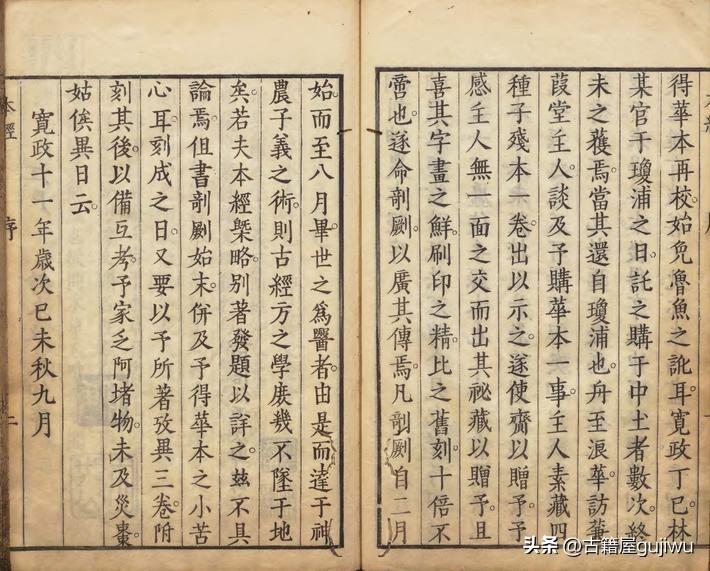 得華本再校。始免魯魚之訛耳。寬政丁巳。林
某官于瓊浦之日。託之購于中土者數次。終
未之獲焉。當其還自瓊浦也。舟至浪華。訪蒹
葭堂主人。談及予購華本一事。主人素藏四
種子殘本一卷。出以示之。遂使齎以贈予。予
感主人無一面之交而出其祕藏以贈予。且
喜其字畫之鮮。刷印之精。比之舊刻。十倍不
啻也。遂命剞劂。以廣其傳焉。凡剞劂自二月
始。而至八月畢。世之爲醫者。由是而達于神
農子義之術。則古經方之學。庶幾不墜于地
矣。若夫本經槩略。別著發題以詳之。玆不具
論焉。但書剞劂始末。併及予得華本之小苦
心耳。刻成之日。又要以予所著攷異三卷。附
刻其後。以備互考。予家乏阿堵物。未及災棗。
姑俟異日云。
寛政十一年歲次己未秋九月
本經 序 二
头条 @古籍屋gujiwu